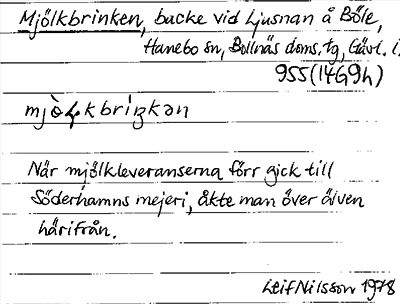 Mjölkbrinken, backe vid Ljusnan å Böle,
Hanebo sn, Bollnäs doms. tg, Gävl. l.
955(14G9h)
När mjölkleveranserna förr gick till
Söderhamns mejeri, åkte man över älven
härifrån.
Leif Nilsson 1978